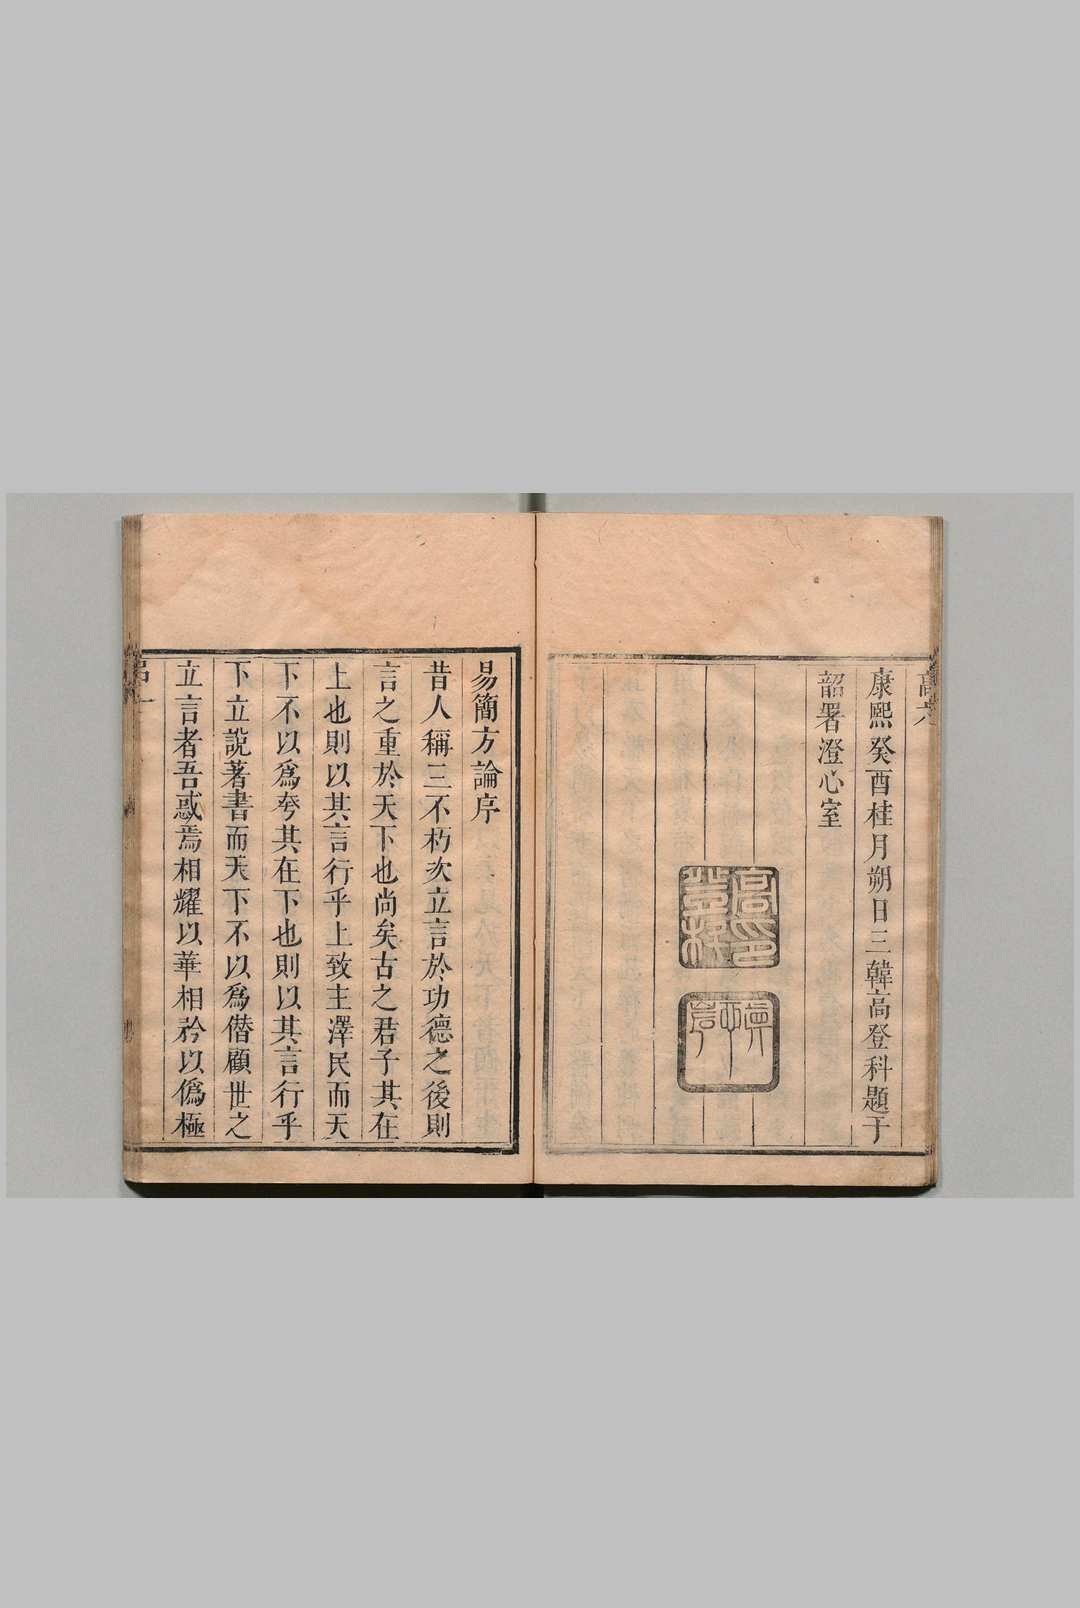 高六
康熙癸酉桂月朔日三韓高登科題于
韶署澄心室
高登科印
易簡方論序
昔人稱三不朽次立言於功德之後則
言之重於天下也尚矣古之君子其在
上也則以其言行乎上致主澤民而天
下不以爲夸其在下也則以其言行乎
下立說著書而天下不以爲僣顧世之
立言者吾惑焉相耀以華相矜以僞極